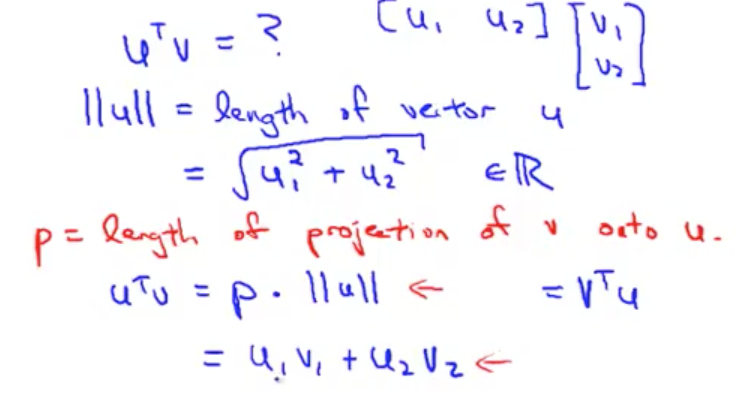 uᵀv = ? [u₁ u₂] [v₁ v₂]
||u|| = length of vector u
= √(u₁² + u₂²) ∈ ℝ
p = length of projection of v onto u.
uᵀv = p · ||u|| ← = vᵀu
= u₁v₁ + u₂v₂ ←